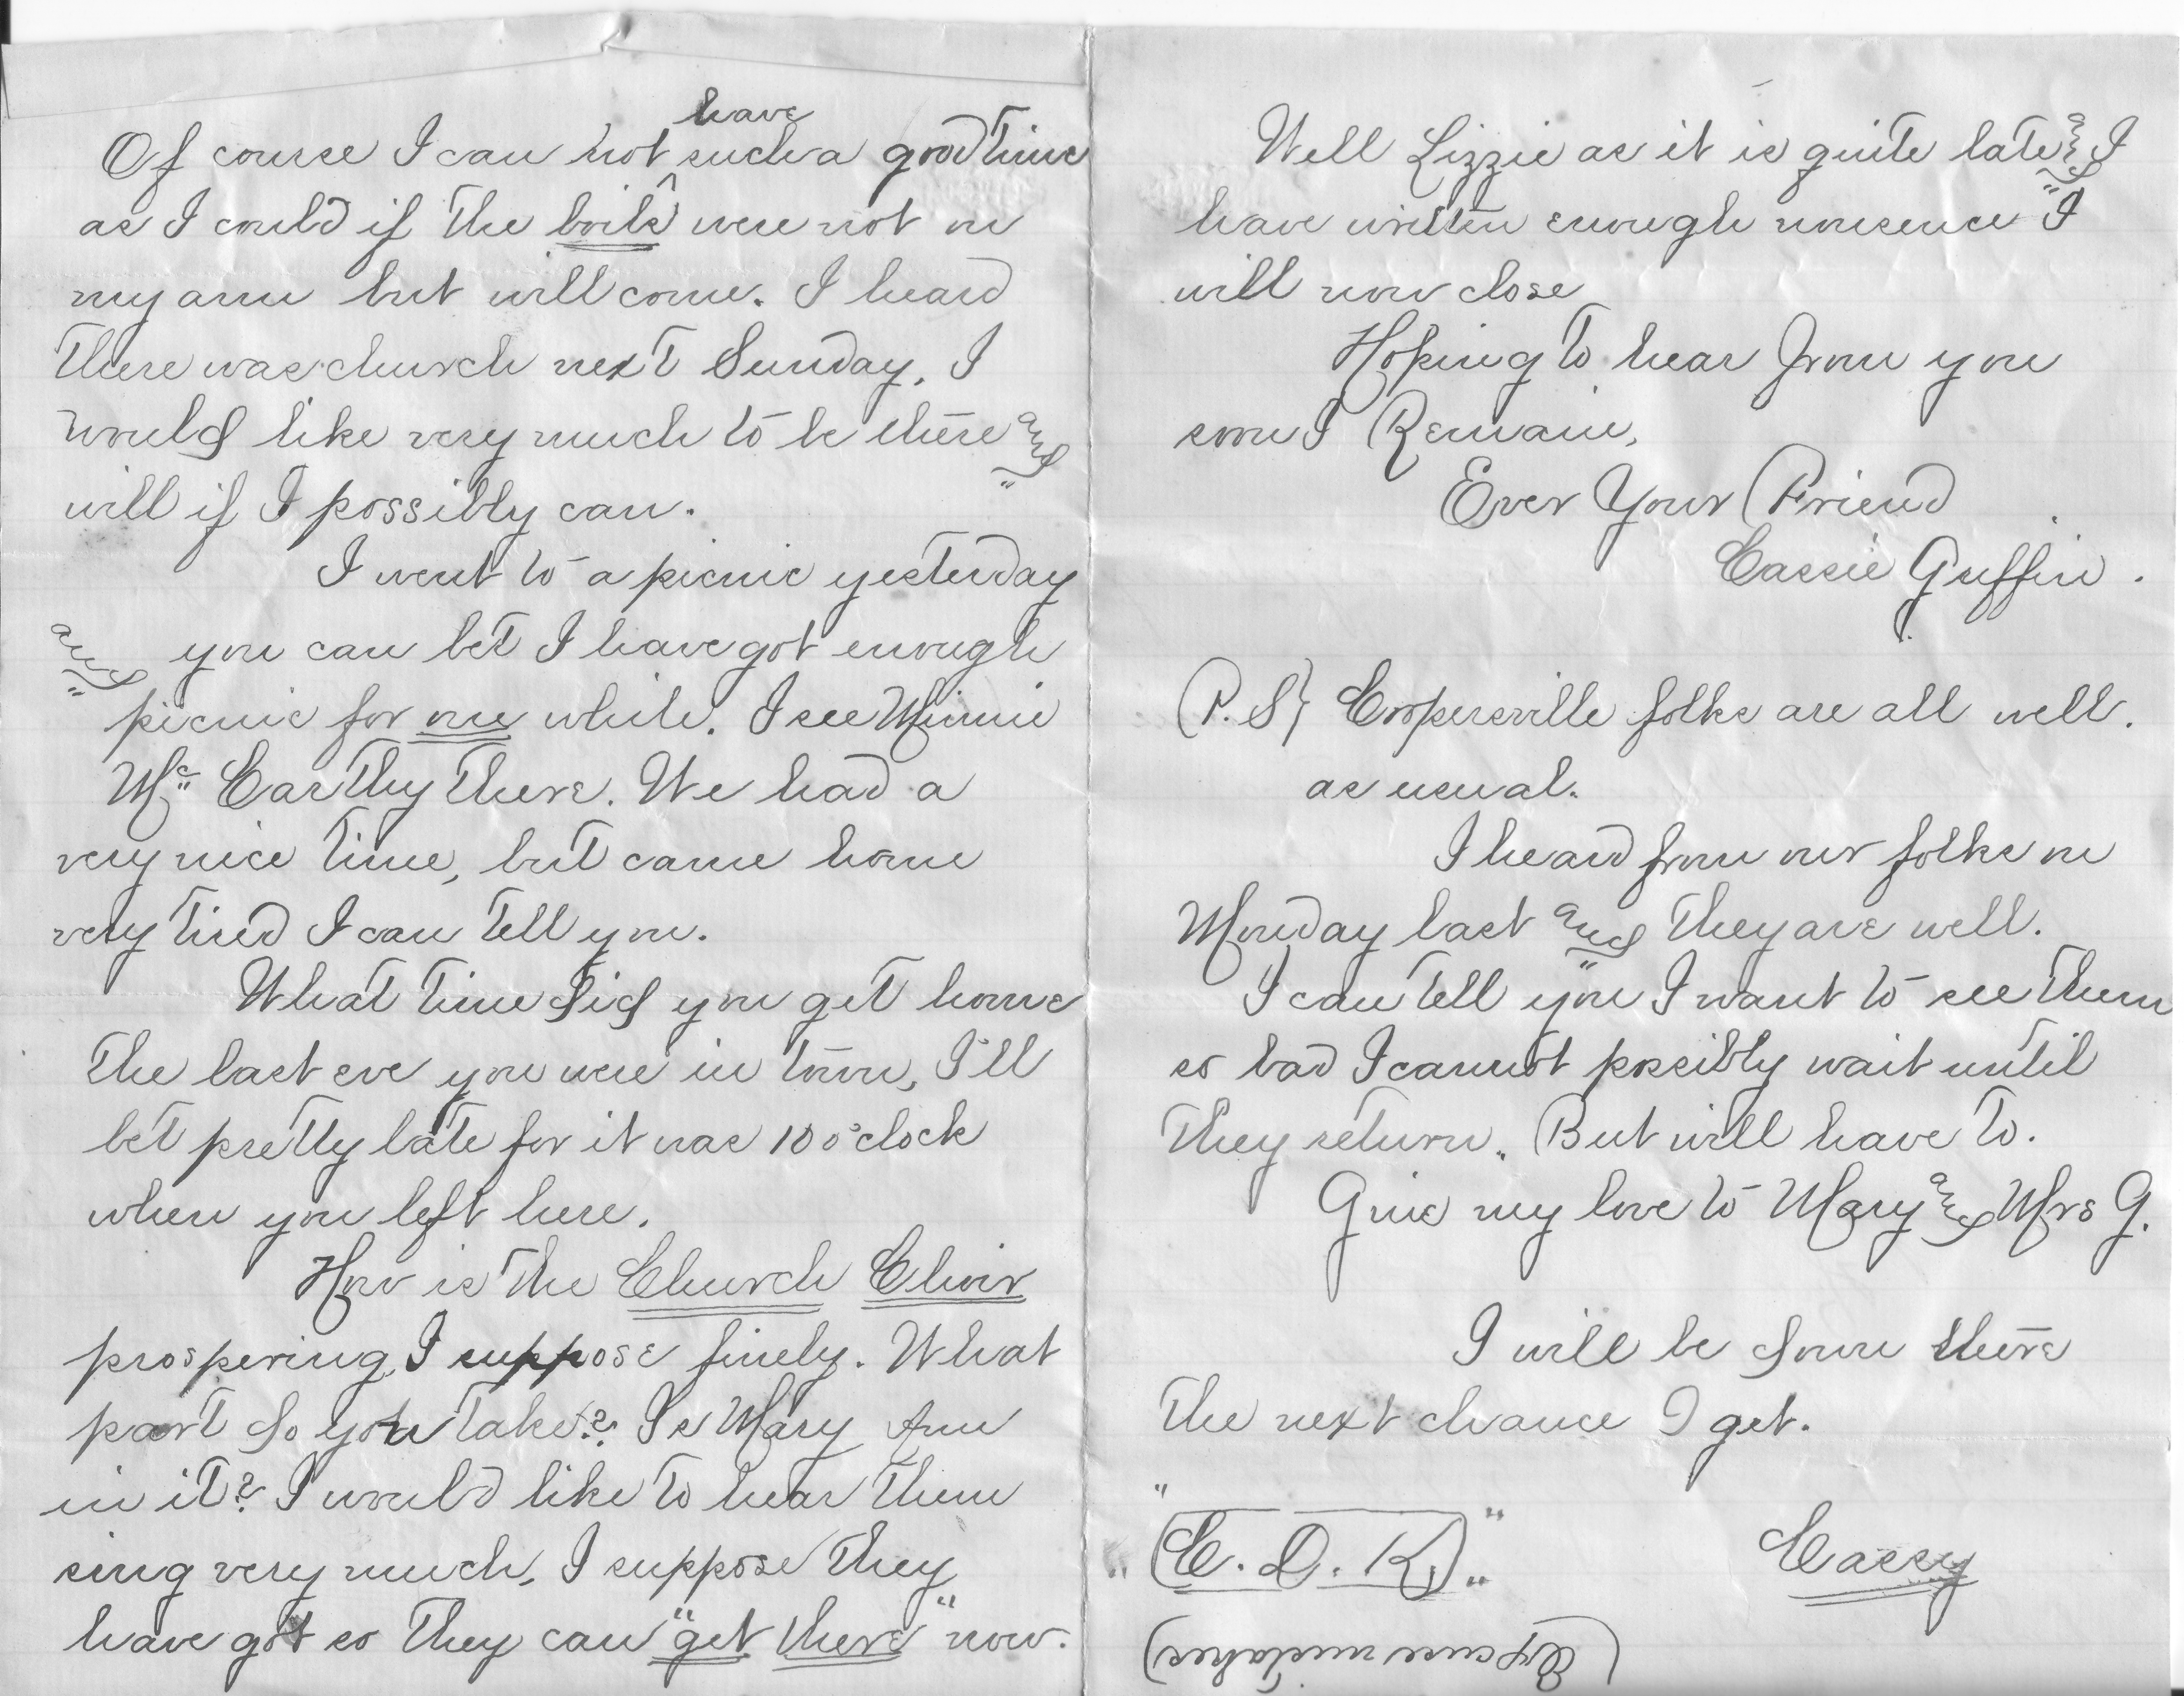 have
Of course I can not such a good time
as I could if the boils were not on
my arm but will come. I heard
there was church next Sunday, I
would like very much to be there and
will if I possibly can.
I went to a picnic yesterday
and you can bet I have got enough
picnic for one while. I see Minnie
Mc Carthy there. We had a
very nice time, but came home
very tired I can tell you.
What time did you get home
the last eve you were in town, I'll
bet pretty late for it was 10 o'clock
when you left here.
How is the Church Choir
prospering, I suppose finely. What
part do you take? Is Mary Ann
in it? I would like to hear them
sing very much, I suppose they
have got so they can "get there" now.
Well Lizzie as it is quite late and I
have written enough nonsence I
will now close
Hoping to hear from you
soon I Remain,
Ever Your Friend
Cassie Guffin.
(P.S} Coopersville folks are all well.
as usual.
I heard from our folks on
Monday last and they are well.
I can tell you I want to see them
so bad I cannot possibly wait until
they return. But will have to.
Give my love to Mary and Mrs G.
I will be down there
the next chance I get.
"C. D. K."
Cassy
(Excuse mistakes)